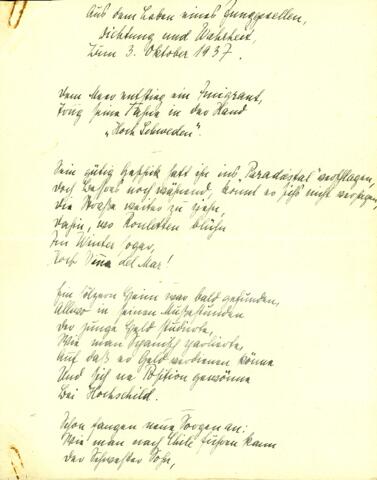 Aus dem Leben eines Junggesellen,
Dichtung und Wahrheit,
Zum 3. Oktober 1937.
Dem Meer entstieg ein Emigrant,
Trug seine Tasche in der Hand
"Hoch Schweden".
Sein gütig Geschick hatt ihn ins "Paradastal" verschlagen,
Doch Besseres noch während, konnt er sich's nicht versagen,
Die Straße weiter zu ziehn,
Dahin, wo Rouletten blühn
Im Winter sogar,
Nach Vina del Mar!
Ein hölzern Heim war bald gefunden,
Allwo in seinen Mußestunden
Der junge Held studierte,
Wie man Spanisch parlierte,
Auf daß er Geld verdienen könne
Und sich ne Position gewönne
Bei Hochschild.
Schon fangen neue Sorgen an:
Wie man nach Chile führen kann
Der Schwester Sohn,